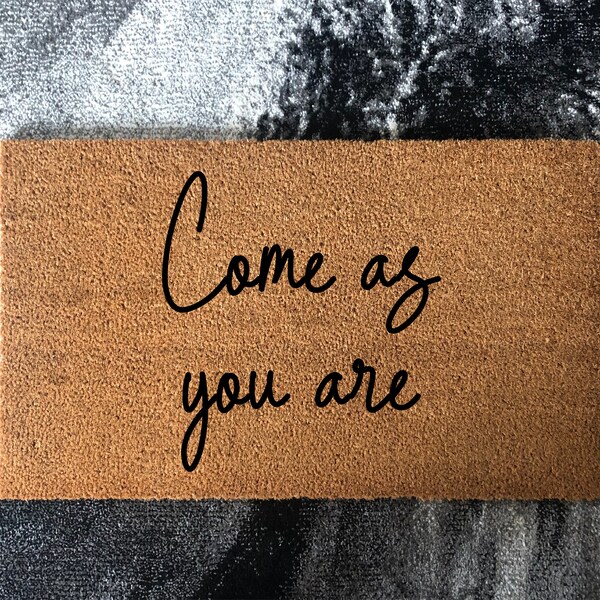 Come as
you are